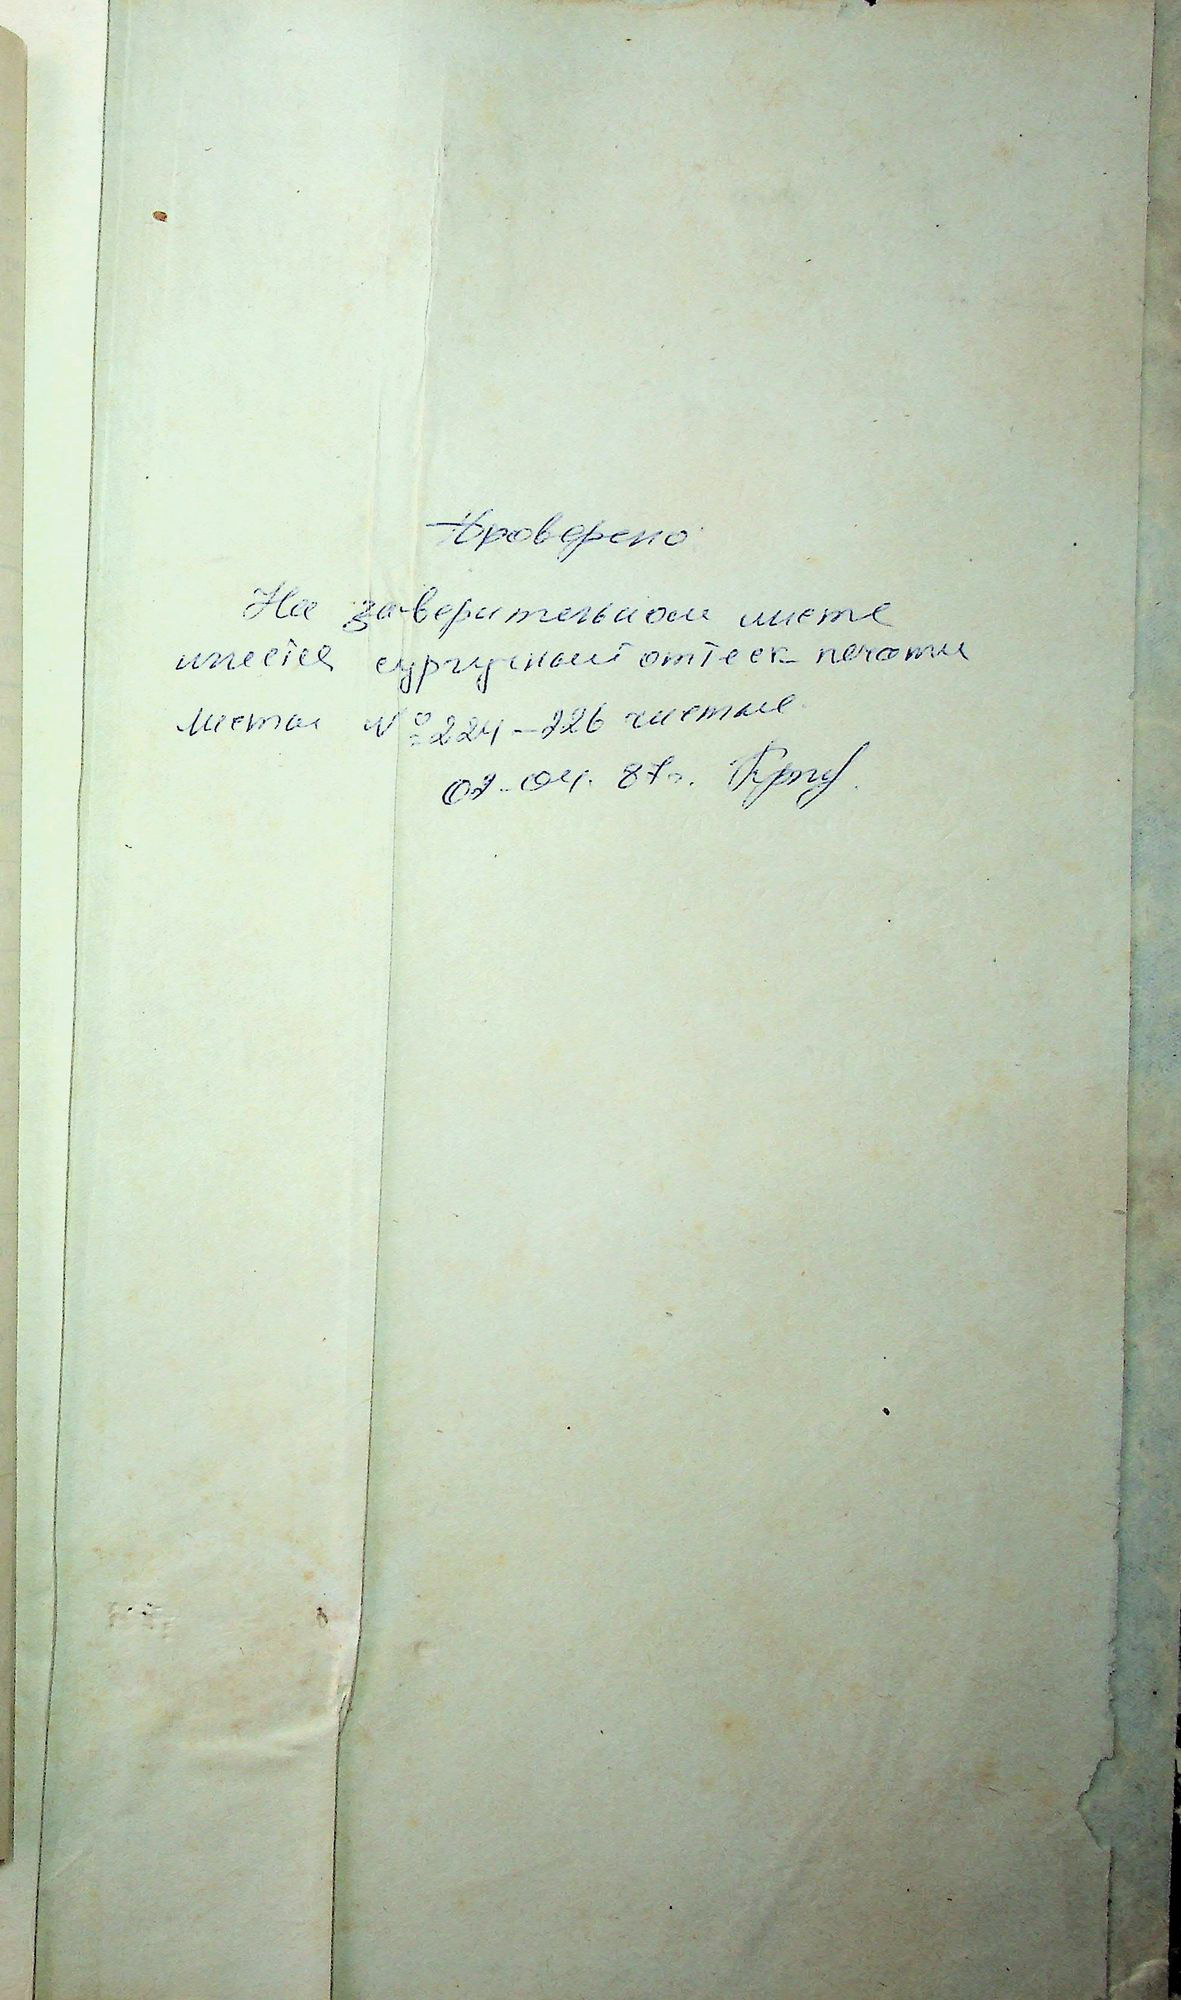 Проверено
На заверительном листе
имеется сургучный оттеск печати
листы № 224-226 чистые.
07.04.87г.